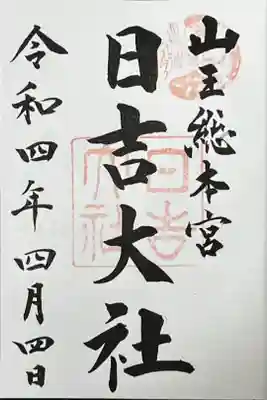 山王総本宮
日吉大社
令和四年四月四日
日吉大社